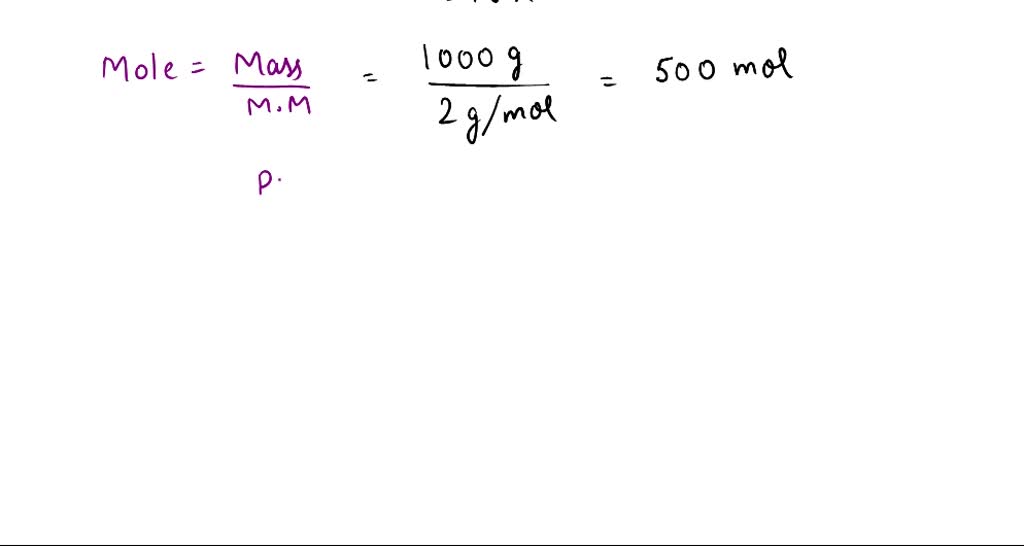 Mole = Mass / M.M = 1000 g / 2 g/mol = 500 mol
P.